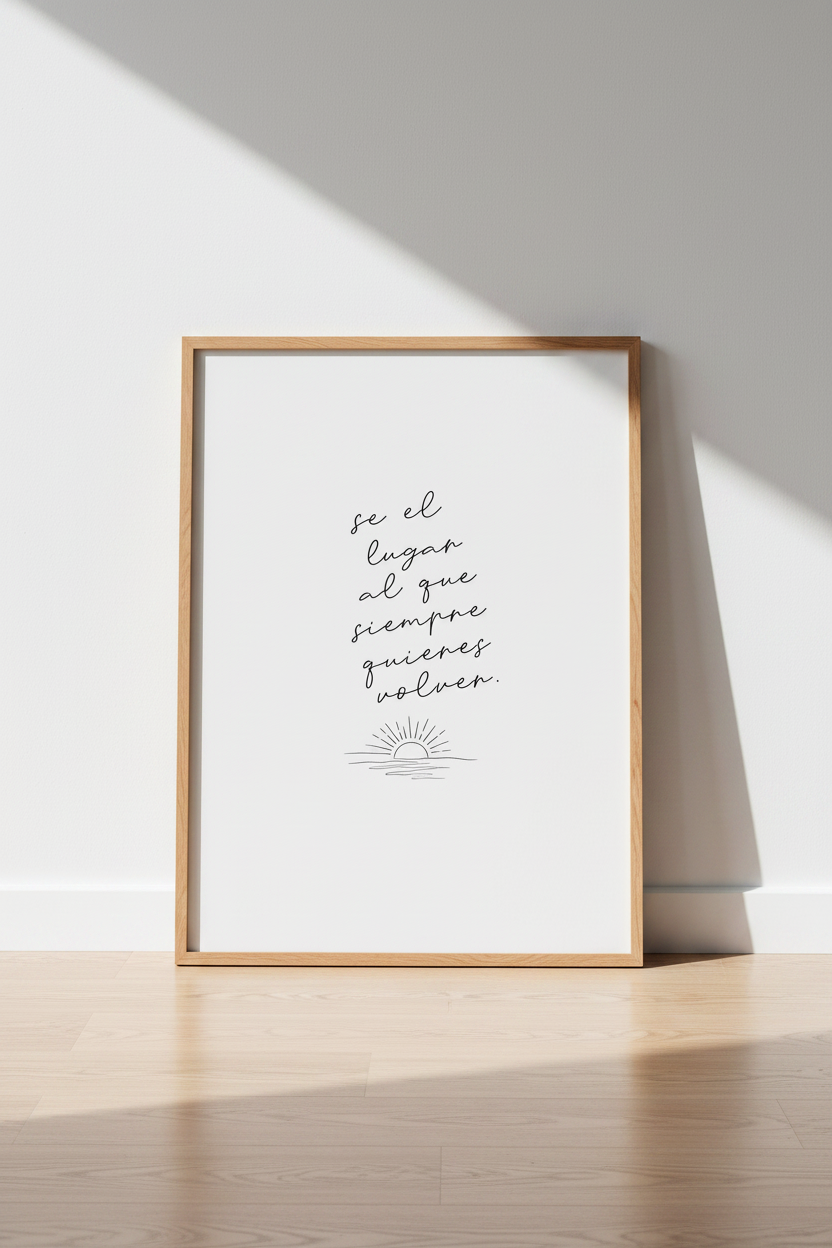 se el
lugar
al que
siempre
quieres
volver.